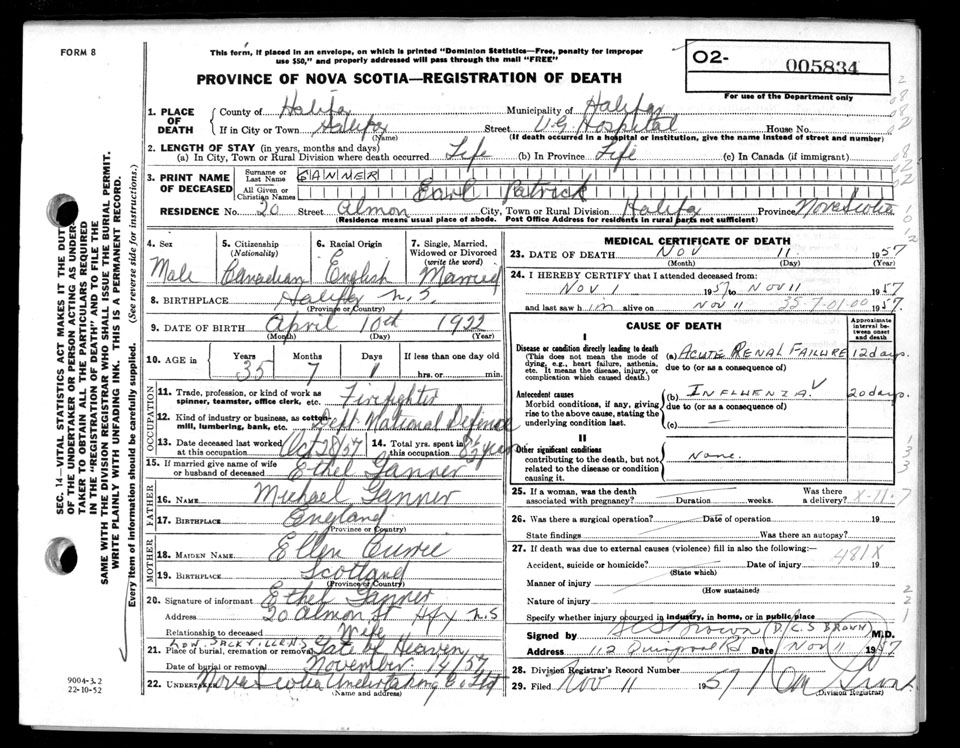 FORM 8
This form, if placed in an envelope, on which is printed "Dominion Statistics—Free, penalty for improper
use $50," and properly addressed will pass through the mail "FREE"
PROVINCE OF NOVA SCOTIA—REGISTRATION OF DEATH
02- 005834
For use of the Department only
SEC. 14—VITAL STATISTICS ACT MAKES IT THE DUTY
OF THE UNDERTAKER OR PERSON ACTING AS UNDER-
TAKER TO OBTAIN ALL THE PARTICULARS REQUIRED
IN THE "REGISTRATION OF DEATH" AND TO FILE THE
SAME WITH THE DIVISION REGISTRAR WHO SHALL ISSUE THE BURIAL PERMIT.
WRITE PLAINLY WITH UNFADING INK. THIS IS A PERMANENT RECORD.
Every item of information should be carefully supplied. (See reverse side for instructions.)
1. PLACE OF DEATH County of Halifax Municipality of Halifax
If in City or Town Halifax (Name) Street V.G. Hospital House No.
(If death occurred in a hospital or institution, give the name instead of street and number)
2. LENGTH OF STAY (in years, months and days)
(a) In City, Town or Rural Division where death occurred Life (b) In Province Life (c) In Canada (if immigrant)
3. PRINT NAME OF DECEASED Surname or Last Name GANNER
All Given or Christian Names Earl Patrick
RESIDENCE No. 20 Street Almon City, Town or Rural Division Halifax Province Nova Scotia
(Residence means usual place of abode. Post Office Address for residents in rural parts not sufficient)
4. Sex Male
5. Citizenship (Nationality) Canadian
6. Racial Origin English
7. Single, Married, Widowed or Divorced (write the word) Married
8. BIRTHPLACE Halifax N.S.
(Province or Country)
9. DATE OF BIRTH April 10th 1922
(Month) (Day) (Year)
10. AGE in Years 35 Months 7 Days 1 If less than one day old hrs. or min.
OCCUPATION
11. Trade, profession, or kind of work as spinner, teamster, office clerk, etc. Firefighter
12. Kind of industry or business, as cotton-mill, lumbering, bank, etc. Dept National Defence
13. Date deceased last worked at this occupation Oct 28/57 14. Total yrs. spent in this occupation 8½ years
15. If married give name of wife or husband of deceased Ethel Ganner
FATHER
16. NAME Michael Ganner
17. BIRTHPLACE England
(Province or Country)
MOTHER
18. MAIDEN NAME Ellen Currie
19. BIRTHPLACE Scotland
(Province or Country)
20. Signature of informant Ethel Ganner
Address 20 Almon St Hfx N.S
Relationship to deceased Wife
21. Place of burial, cremation or removal Gate of Heaven
Date of burial or removal November 14/57
22. UNDERTAKER Nova Scotia Undertaking Co Ltd
(Name and address)
9004-3.2
22-10-52
MEDICAL CERTIFICATE OF DEATH
23. DATE OF DEATH Nov 11 1957
(Month) (Day) (Year)
24. I HEREBY CERTIFY that I attended deceased from:
Nov 1 1957 to Nov 11 1957
and last saw him alive on Nov 11 1957.
35-7-01-00
CAUSE OF DEATH
Approximate interval between onset and death
I
Disease or condition directly leading to death
(This does not mean the mode of dying, e.g., heart failure, asthenia, etc. It means the disease, injury, or complication which caused death.)
(a) ACUTE RENAL FAILURE 12 days.
due to (or as a consequence of)
Antecedent causes
Morbid conditions, if any, giving rise to the above cause, stating the underlying condition last.
(b) INFLUENZA. 20 days.
due to (or as a consequence of)
(c) —
II
Other significant conditions
contributing to the death, but not related to the disease or condition causing it.
None.
25. If a woman, was the death associated with pregnancy? Duration weeks. Was there a delivery?
X-11-7
26. Was there a surgical operation? Date of operation 19
State findings Was there an autopsy?
27. If death was due to external causes (violence) fill in also the following:—
481X
Accident, suicide or homicide? Date of injury 19
(State which)
Manner of injury
(How sustained)
Nature of injury
Specify whether injury occurred in industry, in home, or in public place
Signed by C S Brown (D. C. S BROWN) M.D.
Address 112 Quinpool Rd Date Nov 11 1957
28. Division Registrar's Record Number
29. Filed Nov 11 1957
(Division Registrar)